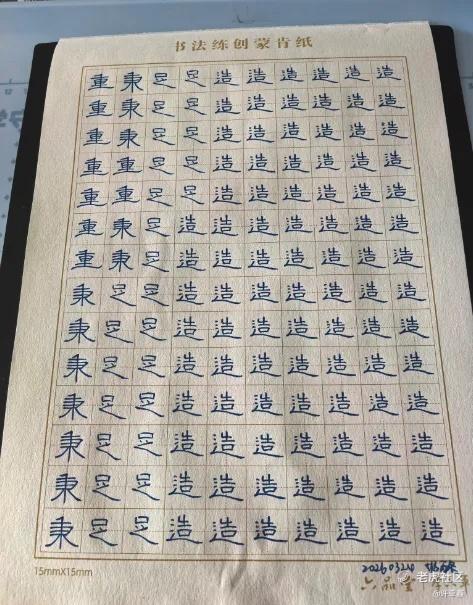 书法练创蒙肯纸
重秉足足造造造造造造
重秉足足造造造造造造
重秉足足造造造造造造
重重足足造造造造造造
重重足足造造造造造造
重秉足造造造造造造造
重秉足造造造造造造造
秉足足造造造造造造造
秉足足造造造造造造造
秉足足造造造造造造造
秉足足造造造造造造造
秉足足造造造造造造造
秉足足造造造造造造造
秉足足造造造造造造造
15mmX15mm
老虎社区
六品堂